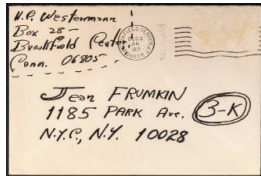 H.C. Westermann
Box 28
Brookfield Center
Conn. 06805
Jean FRUMKIN
1185 PARK Ave. 3-K
N.Y.C., N.Y. 10028